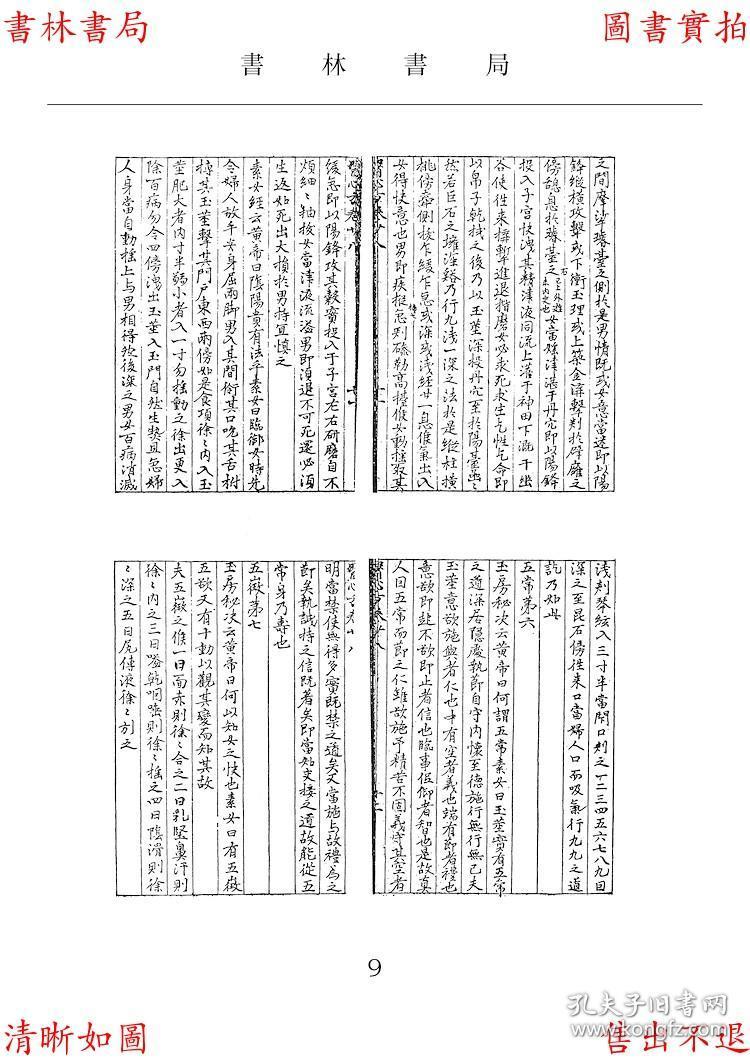 書林書局
圖書實拍
書林書局
之間摩挲璿臺之側於是男情既或女意當迷即以陽
鋒縱橫攻擊或下衝玉理或上築金溝擊判於辟雍之
傍憩息於璿臺之右以上外遊未內交也女當婬津湛于丹穴即以陽鋒
投入子宮快洩其精津液同流上灌于神田下溉于幽
谷使往來拼擊進退揩磨女必求死求生乞性乞命即
以帛子乾拭之後乃以玉莖深投丹穴至於陽臺嵓〻
然若巨石之擁深谿乃行九淺一深之法於是縱柱橫
桃傍牽側拔乍緩乍急或深或淺經廿一息候氣出入
女得快意也男即疾摐急刾磣勒高擡候女動搖取其
醫心方卷廿八
緩急即以陽鋒攻其穀實捉入于子宮左右研磨自不
煩細〻抽拔女當津液流溢男即須退不可死還必須
生返如死出大損於男特宜慎之
素女經云黃帝曰陰陽貴有法乎素女曰臨御女時先
令婦人放平安身屈兩脚男入其間銜其口吮其舌拊
搏其玉莖擊其門戶東西兩傍如是食頃徐〻內入玉
莖肥大者內寸半弱小者入一寸勿搖動之徐出更入
除百病勿令四傍洩出玉莖入玉門自然生熱且急婦
人身當自動搖上與男相得然後深之男女百病消滅
淺刾琴絃入三寸半當閇口刾之一二三四五六七八九因
深之至昆石傍往來口當婦人口而吸氣行九九之道
訖乃如此
五常第六
玉房秘決云黃帝曰何謂五常素女曰玉莖實有五常
之道深居隱處執節自守內懷至德施行無行無已夫
玉莖意欲施與者仁也中有空者義也端有節者禮也
意欲即起不欲即止者信也臨事低仰者智也是故真
人因五常而節之仁雖欲施予精苦不固義守其空者
醫心方卷廿八
明當禁使無得多實既禁之道矣又當施与故禮為之
節矣執誠持之信既著矣即當知交接之道故能從五
常身乃壽也
五徵第七
玉房秘決云黃帝曰何以知女之快也素女曰有五徵
五欲又有十動以觀其變而知其故
夫五徵之候一曰面赤則徐〻合之二曰乳堅鼻汗則
徐〻內之三曰嗌乾咽唾則徐〻搖之四曰陰滑則徐
〻深之五曰尻傳液徐〻引之
9
孔夫子旧书网
www.kongfz.com
清晰如圖
售出不退